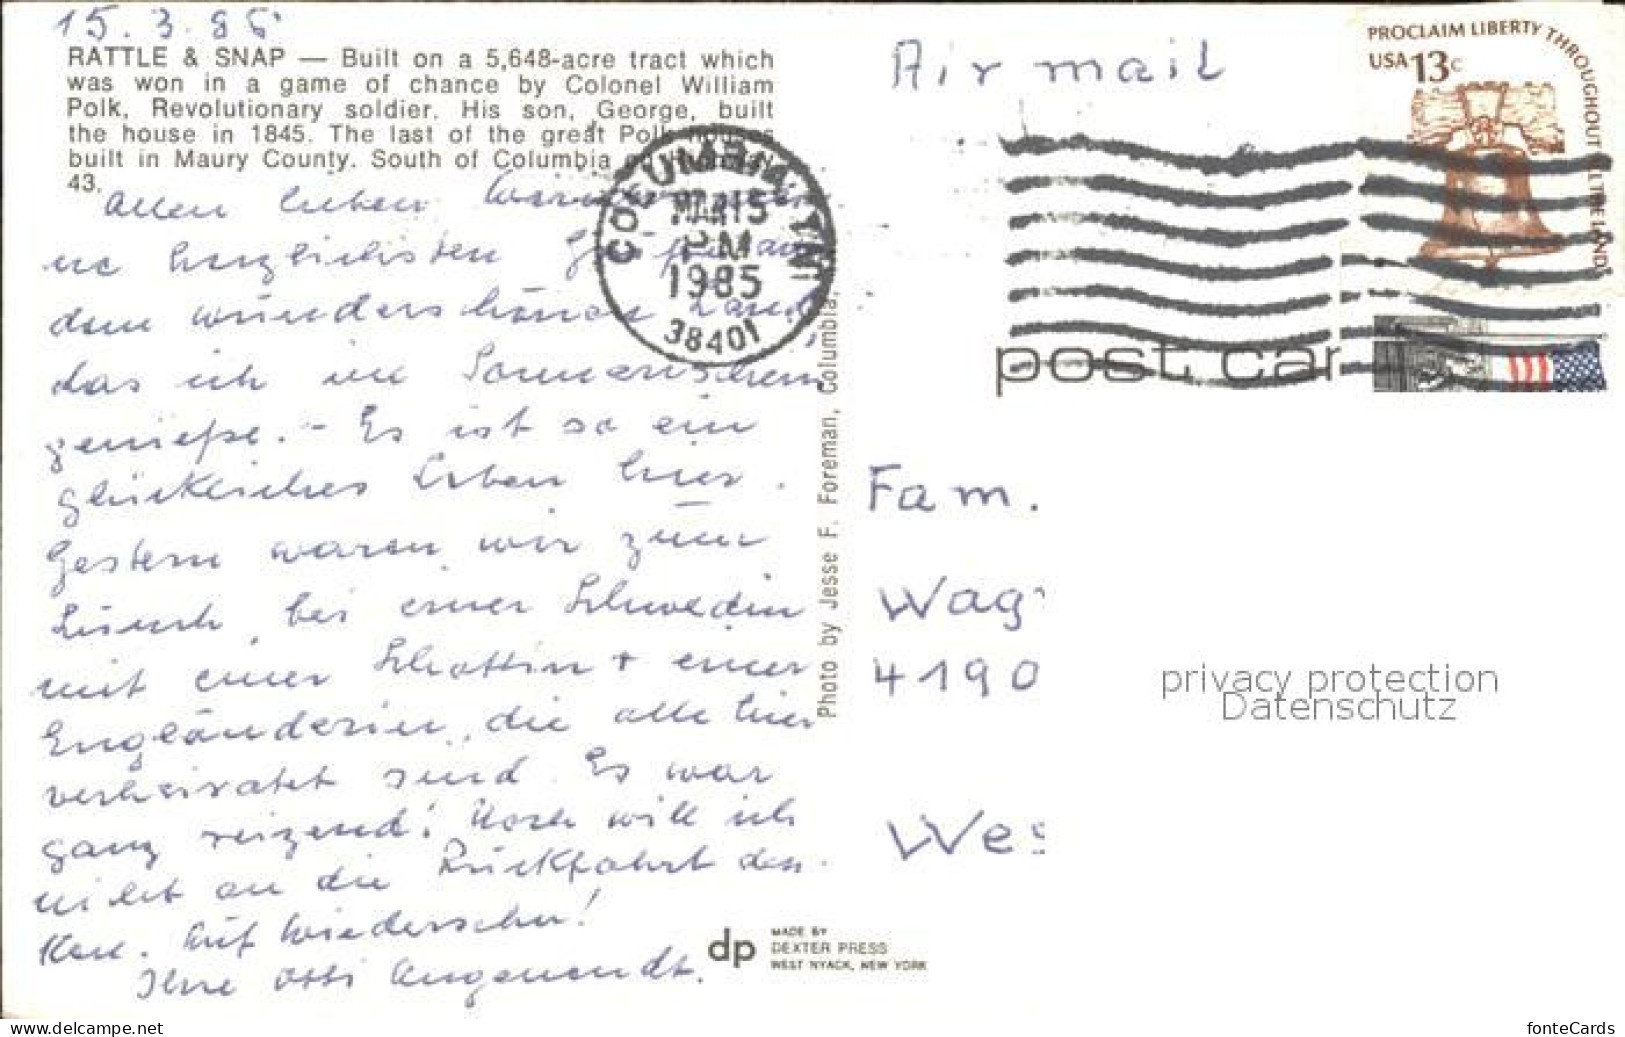 15. 3. 85
RATTLE & SNAP — Built on a 5,648-acre tract which
was won in a game of chance by Colonel William
Polk, Revolutionary soldier. His son, George, built
the house in 1845. The last of the great Polk houses
built in Maury County. South of Columbia on
43.
Allen lieben
herzlichsten
dem wunderschönen Land,
das ich im Sonnenschein
genieße. - Es ist so ein
glückliches Leben hier.
Gestern waren wir zum
Lunch, bei einer Schwedin
mit einer Schottin + einer
Engländerin, die alle hier
verheiratet sind. Es war
ganz reizend! Noch will ich
nicht an die Rückfahrt den-
ken. Auf Wiedersehn!
Ihre Otti Angenendt.
COLUMBIA, TN
MAR 15
PM
1985
38401
Photo by Jesse F. Foreman, Columbia,
dp
MADE BY
DEXTER PRESS
WEST NYACK, NEW YORK
Air mail
PROCLAIM LIBERTY THROUGHOUT ALL THE LAND
USA 13c
post car
Fam.
Wag
4190
Wes
privacy protection
Datenschutz
www.delcampe.net
fonteCards